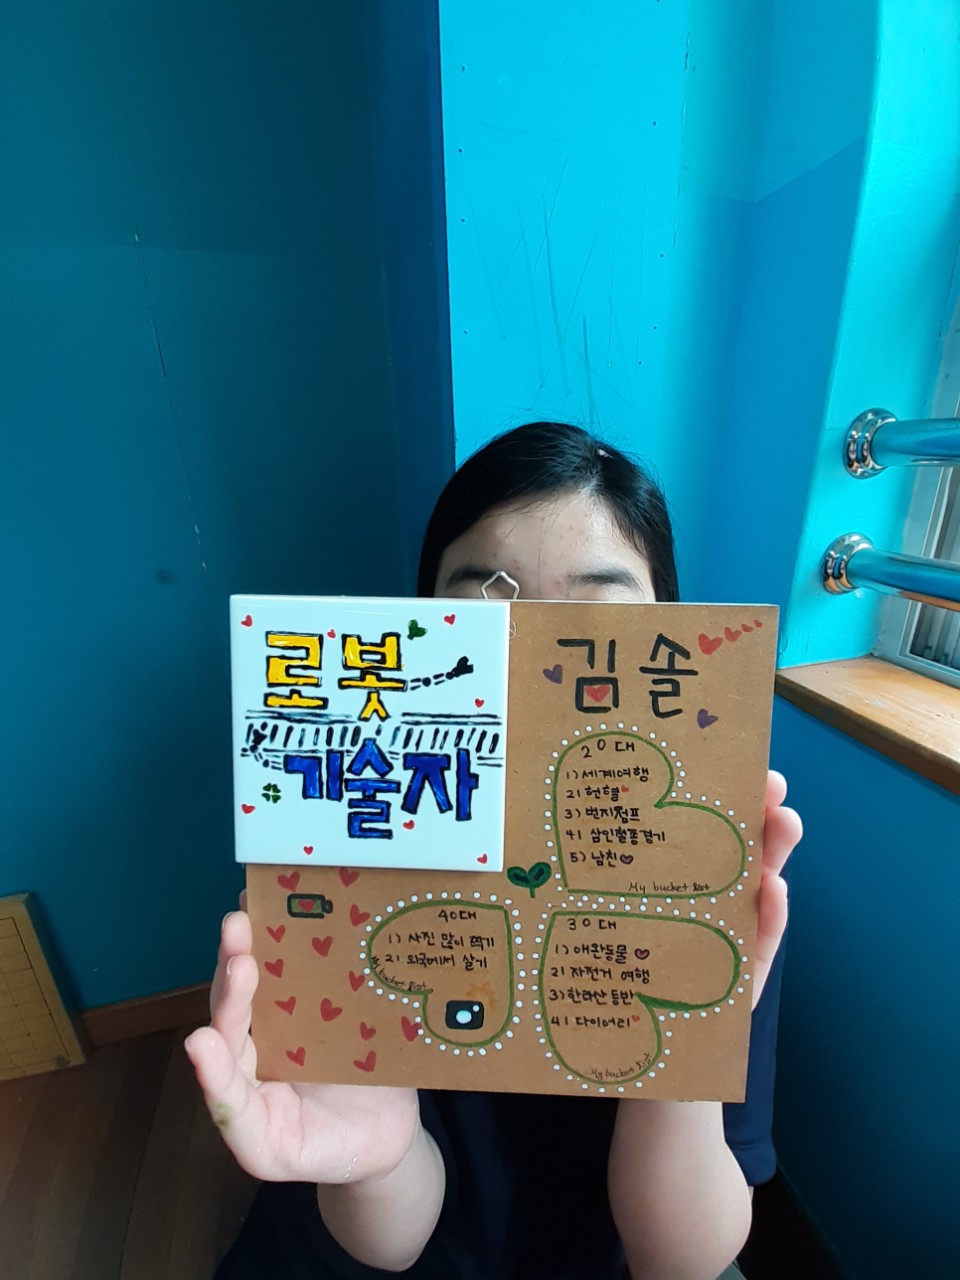 로봇
기술자
김솔
20대
1) 세계여행
2) 헌혈
3) 번지점프
4) 삼인칠종경기
5) 남친
My bucket list
40대
1) 사진 많이 찍기
2) 외국에서 살기
My bucket list
30대
1) 애완동물
2) 자전거 여행
3) 한라산 등반
4) 다이어리
My bucket list